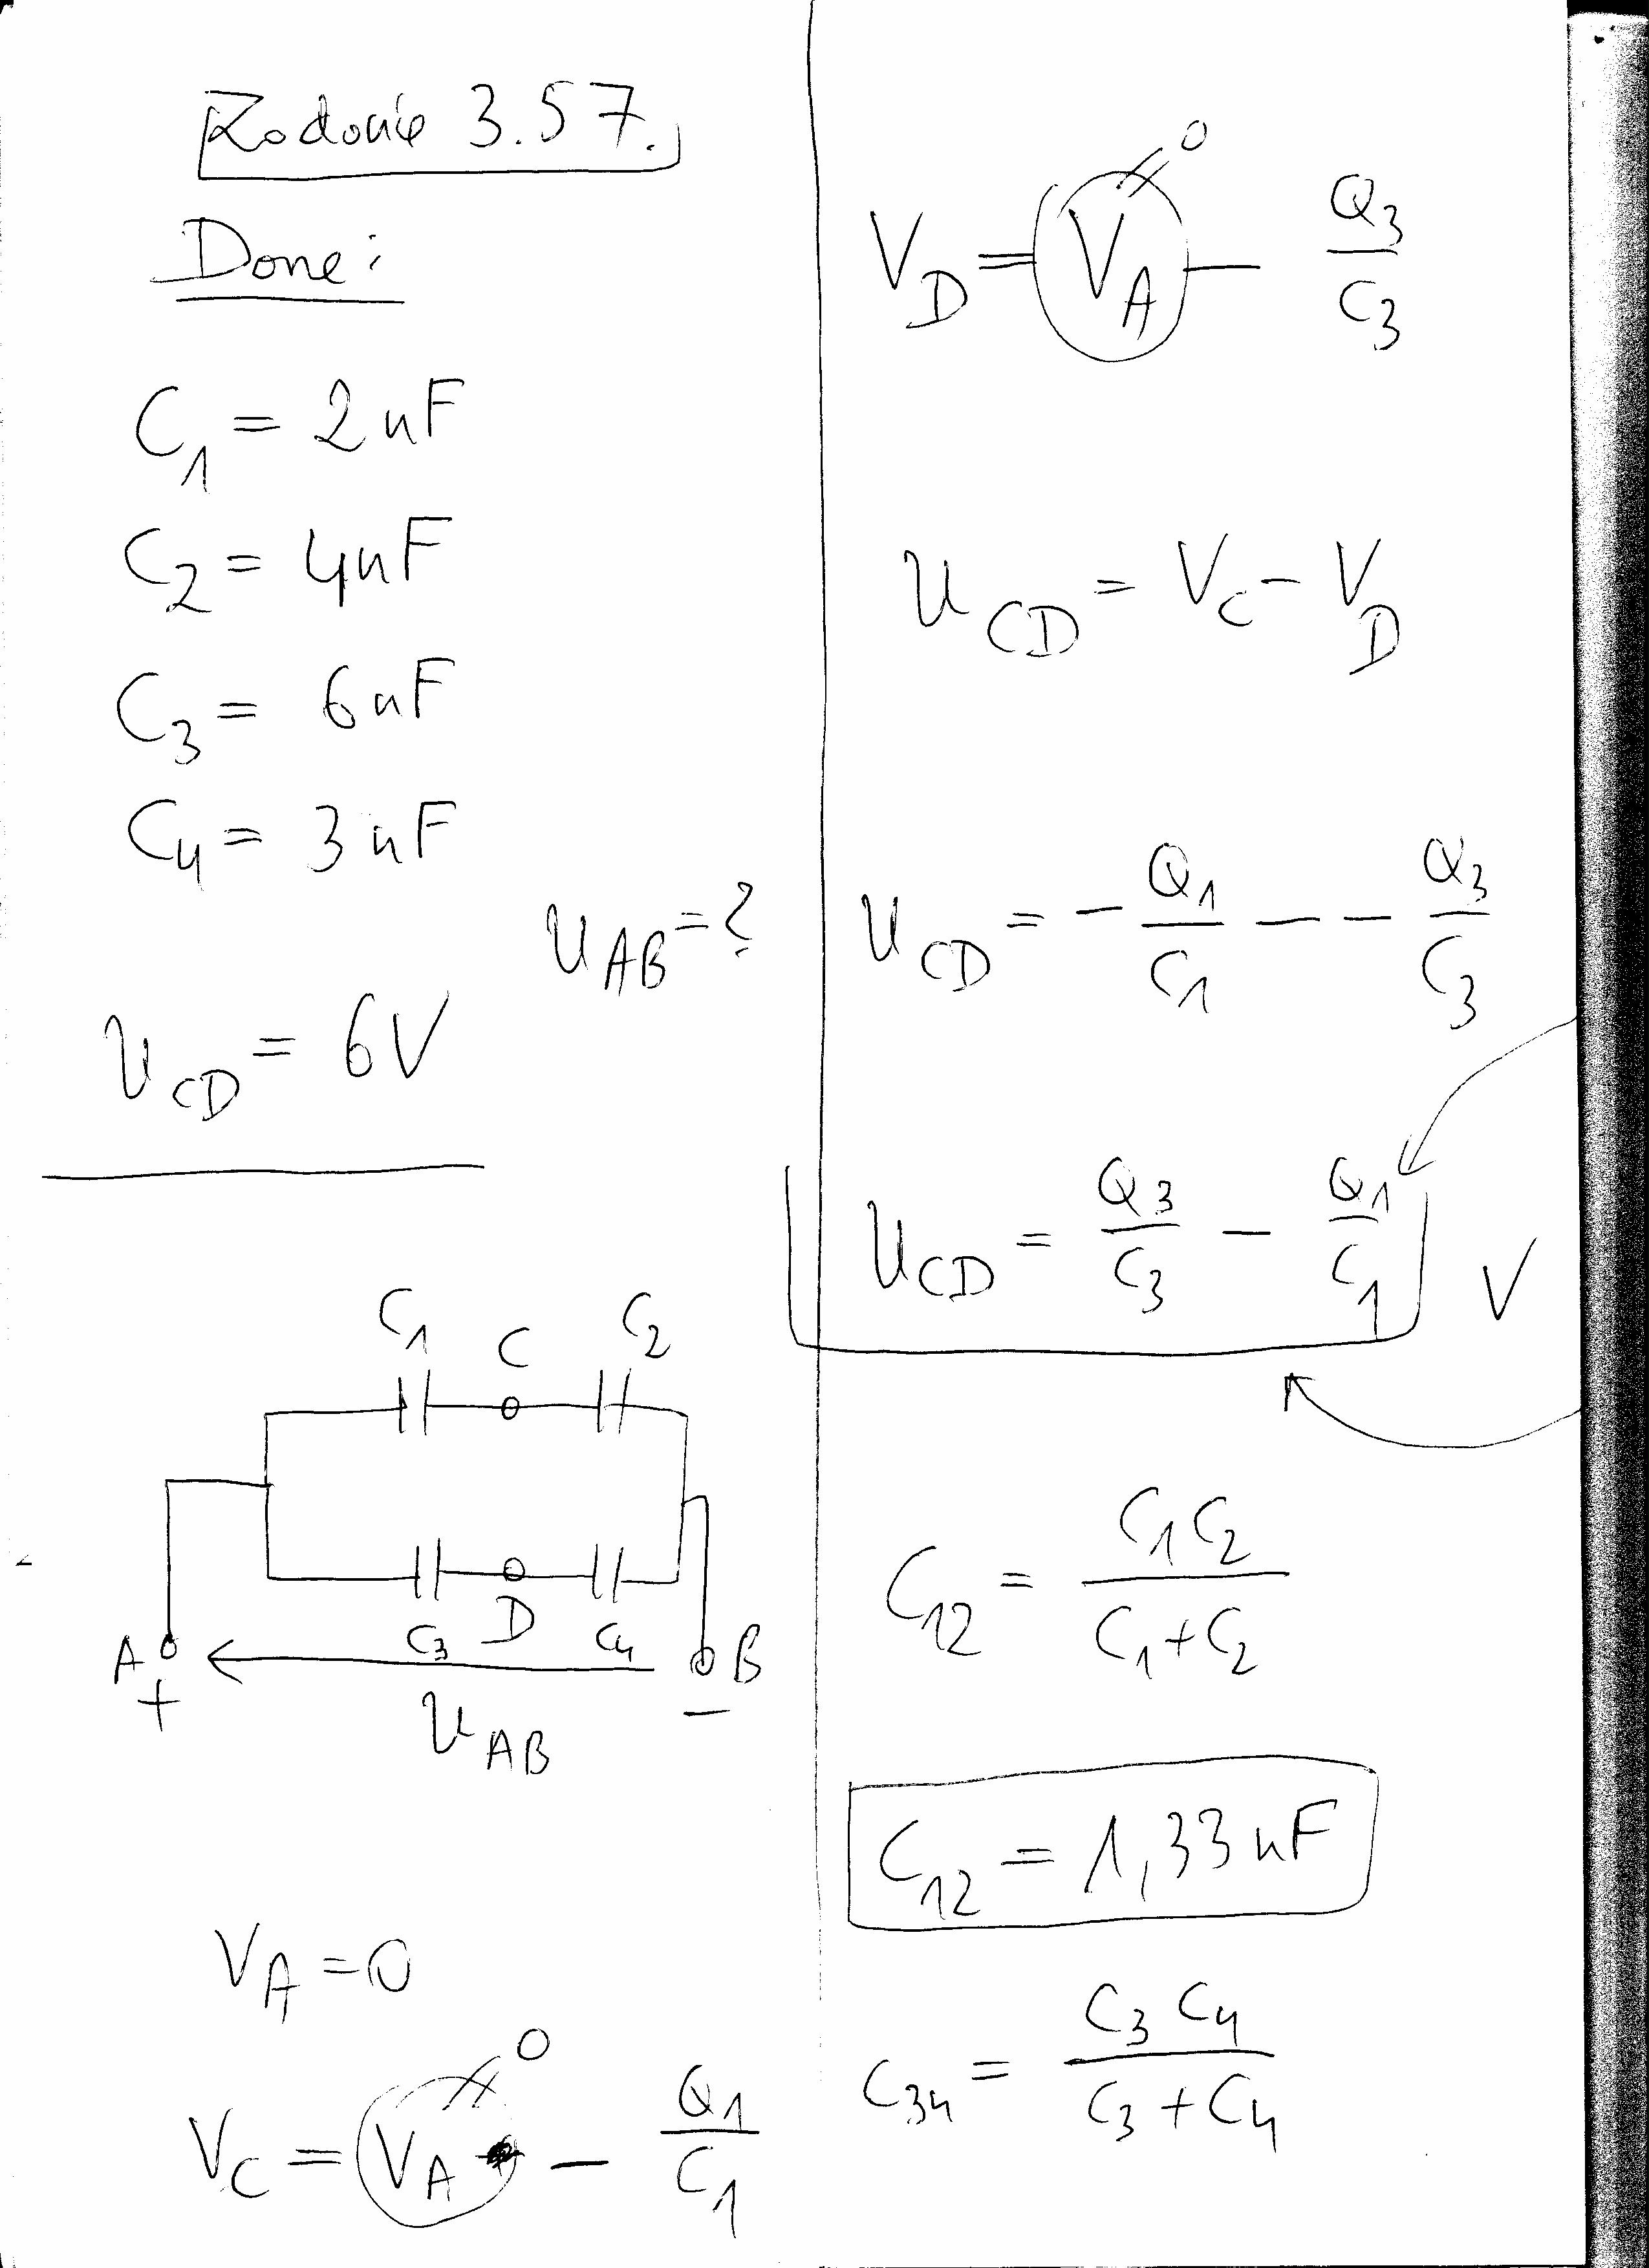 Zadanie 3.57.
Dane:
C₁ = 2nF
C₂ = 4nF
C₃ = 6nF
C₄ = 3nF
U_AB = ?
U_CD = 6V
C₁ C C₂
C₃ D C₄
A B
+ −
U_AB
V_A = 0
0
V_C = V_A − Q₁/C₁
0
V_D = V_A − Q₃/C₃
U_CD = V_C − V_D
U_CD = − Q₁/C₁ − − Q₃/C₃
U_CD = Q₃/C₃ − Q₁/C₁ V
C₁₂ = C₁C₂/(C₁+C₂)
C₁₂ = 1,33nF
C₃₄ = C₃C₄/(C₃+C₄)